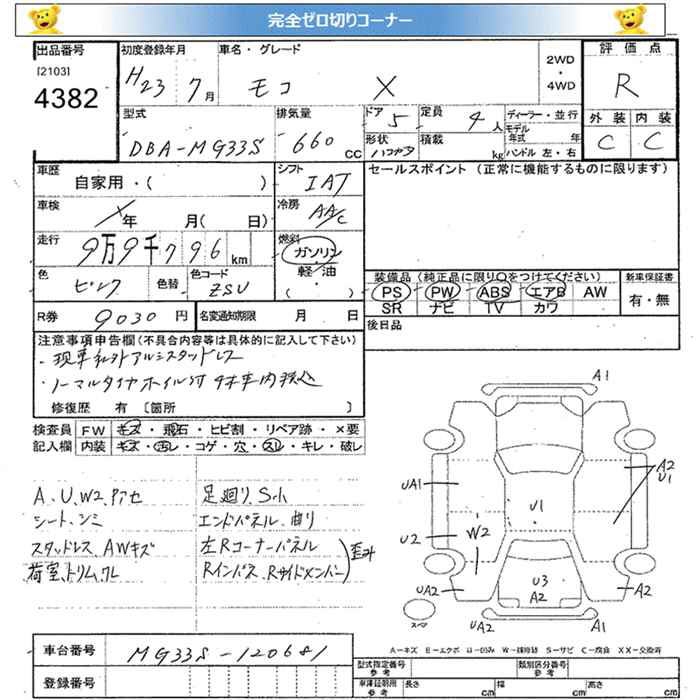 完全ゼロ切りコーナー
出品番号
[2103]
4382
初度登録年月
H23 7月
車名・グレード
モコ X
2WD
・
4WD
評価点
R
外装 内装
C C
型式
DBA-MG33S
排気量
660 cc
ドア 5
形状 ハコガタ
定員 4人
積載 kg
ディーラー・並行
モデル年式 年
ハンドル 左・右
車歴
自家用・( )
シフト
IAT
セールスポイント (正常に機能するものに限ります)
車検
X年 月( 日)
冷房
AA/C
走行
9万9千796 km
燃料
ガソリン
軽・油
( ・ )
色
ピンク
色替
色コード
ZSU
装備品(純正品に限り○をつけてください)
PS PW ABS エアB AW
SR ナビ TV カワ
新車保証書
有・無
R券 9030円
名変通知期限 月 日
後日品
注意事項申告欄(不具合内容等は具体的に記入して下さい)
・現車社外アルミスタッドレス
・ノーマルタイヤホイル付 4本車内積込
修復歴 有 〔箇所 〕
検査員 FW キズ・飛石・ヒビ割・リペア跡・×要
記入欄 内装 キズ・ヨレ・コゲ・穴・スレ・キレ・破レ
A、U、W2、アセ
シート、シミ
スタッドレス、AWキズ
荷室、トリム、ワレ
足廻り、S小
エンドパネル、曲り
左Rコーナーパネル
Rインパネ、Rサイドメンバー
歪み
A1
UA1
A2
U1
U1
U2
W2
U3
A2
UA2
A2
UA2
A1
スペア
A-キズ E-エクボ U-凹み W-補修跡 S-サビ C-腐食 XX-交換済
車台番号 MG33S-120681
登録番号
型式指定番号
参考
類別区分番号
参考
車庫証明用
参考
長さ cm 幅 cm 高さ cm